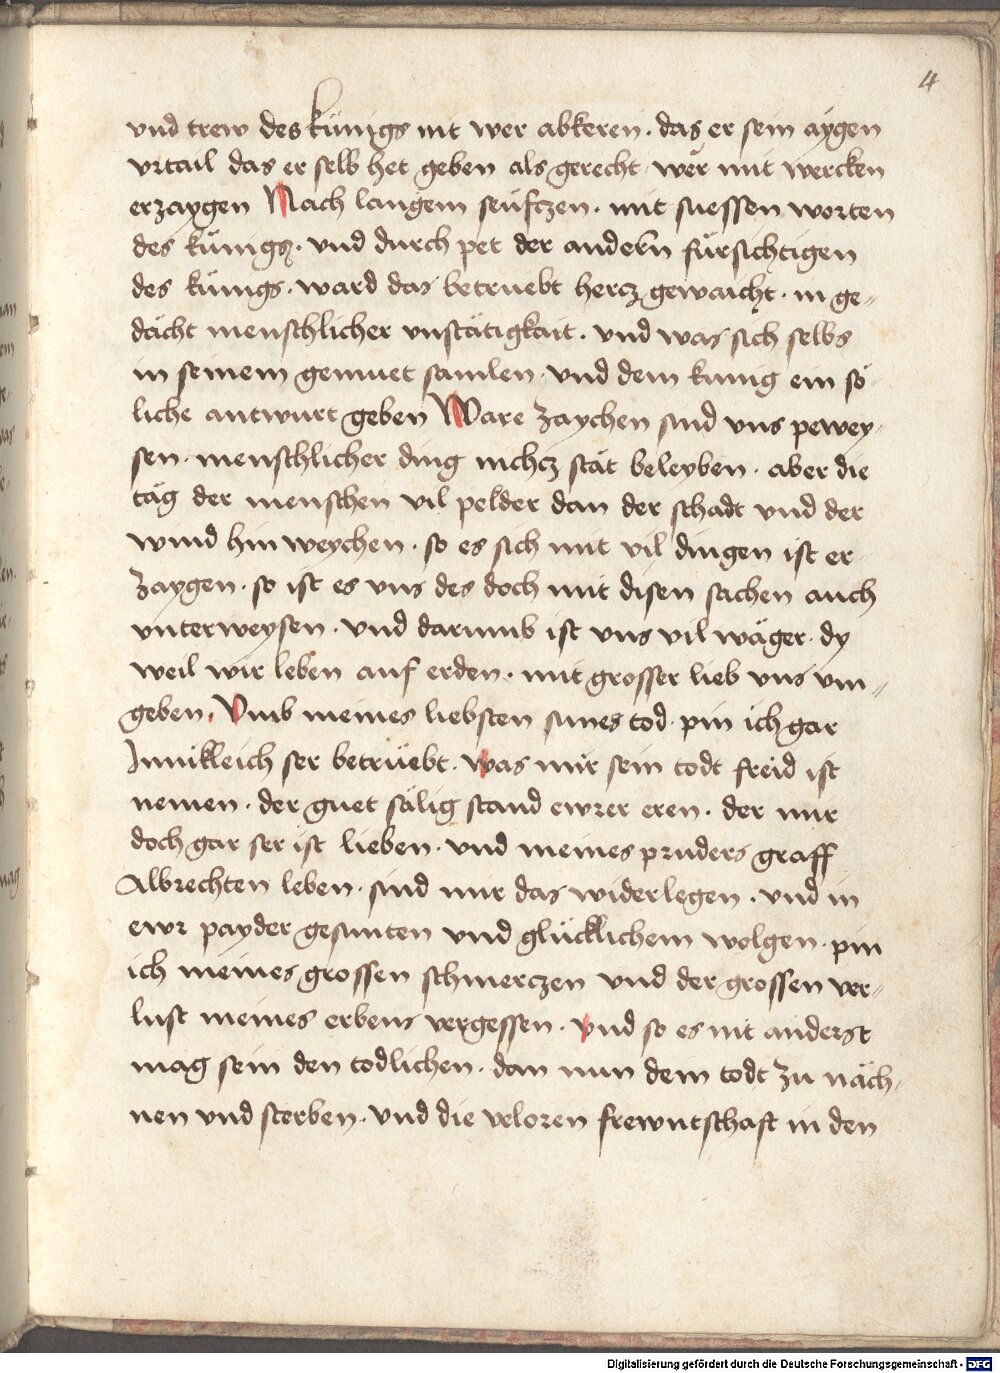 4
vnd trew des künigs nit wer abkeren · das er sein aÿgen
vrtail das er selb het geben als gerecht · wër mit wercken
erzaygen Nach langem seüfczen · mit suessen worten
des künigs · vnd durch pet der andern fürsichtigen
des künigs · ward das betruebt hercz gewaicht · in ge-
dächt menschlicher vnstätigkait · vnd was sich selbs
in seinem gemuet samlen · vnd dem kunig ein sö-
liche antwurt geben Ware zaychen sind vns pewey-
sen · menschlicher ding nichcz stät beleyben · aber die
täg der menschen vil pelder dan der schadt vnd der
wind hin weychen · so es sich mit vil dingen ist er-
zaygen · so ist es vns des doch mit disen sachen auch
vnterweysen · vnd darumb ist vns vil wäger · dy
weil wir leben auf erden · mit grosser lieb vns vm-
geben · Vmb meines liebsten sunes tod · pin ich gar
Innikleich ser betrüebt · was mir sein todt freid ist
nemen · der guet sälig stand ewrer eren · der mir
doch gar ser ist lieben · vnd meines pruders graff
Albrechten leben · sind mir das widerlegen · vnd in
ewr payder gesunten vnd glücklichem wolgen · pin
ich meines grossen schmerczen vnd der grossen ver-
lust meines erbens vergessen · vnd so es nit anderst
mag sein den todlichen · dan nun dem todt zu näch-
nen vnd sterben · vnd die veloren frewntschaft in den
Digitalisierung gefördert durch die Deutsche Forschungsgemeinschaft - DFG